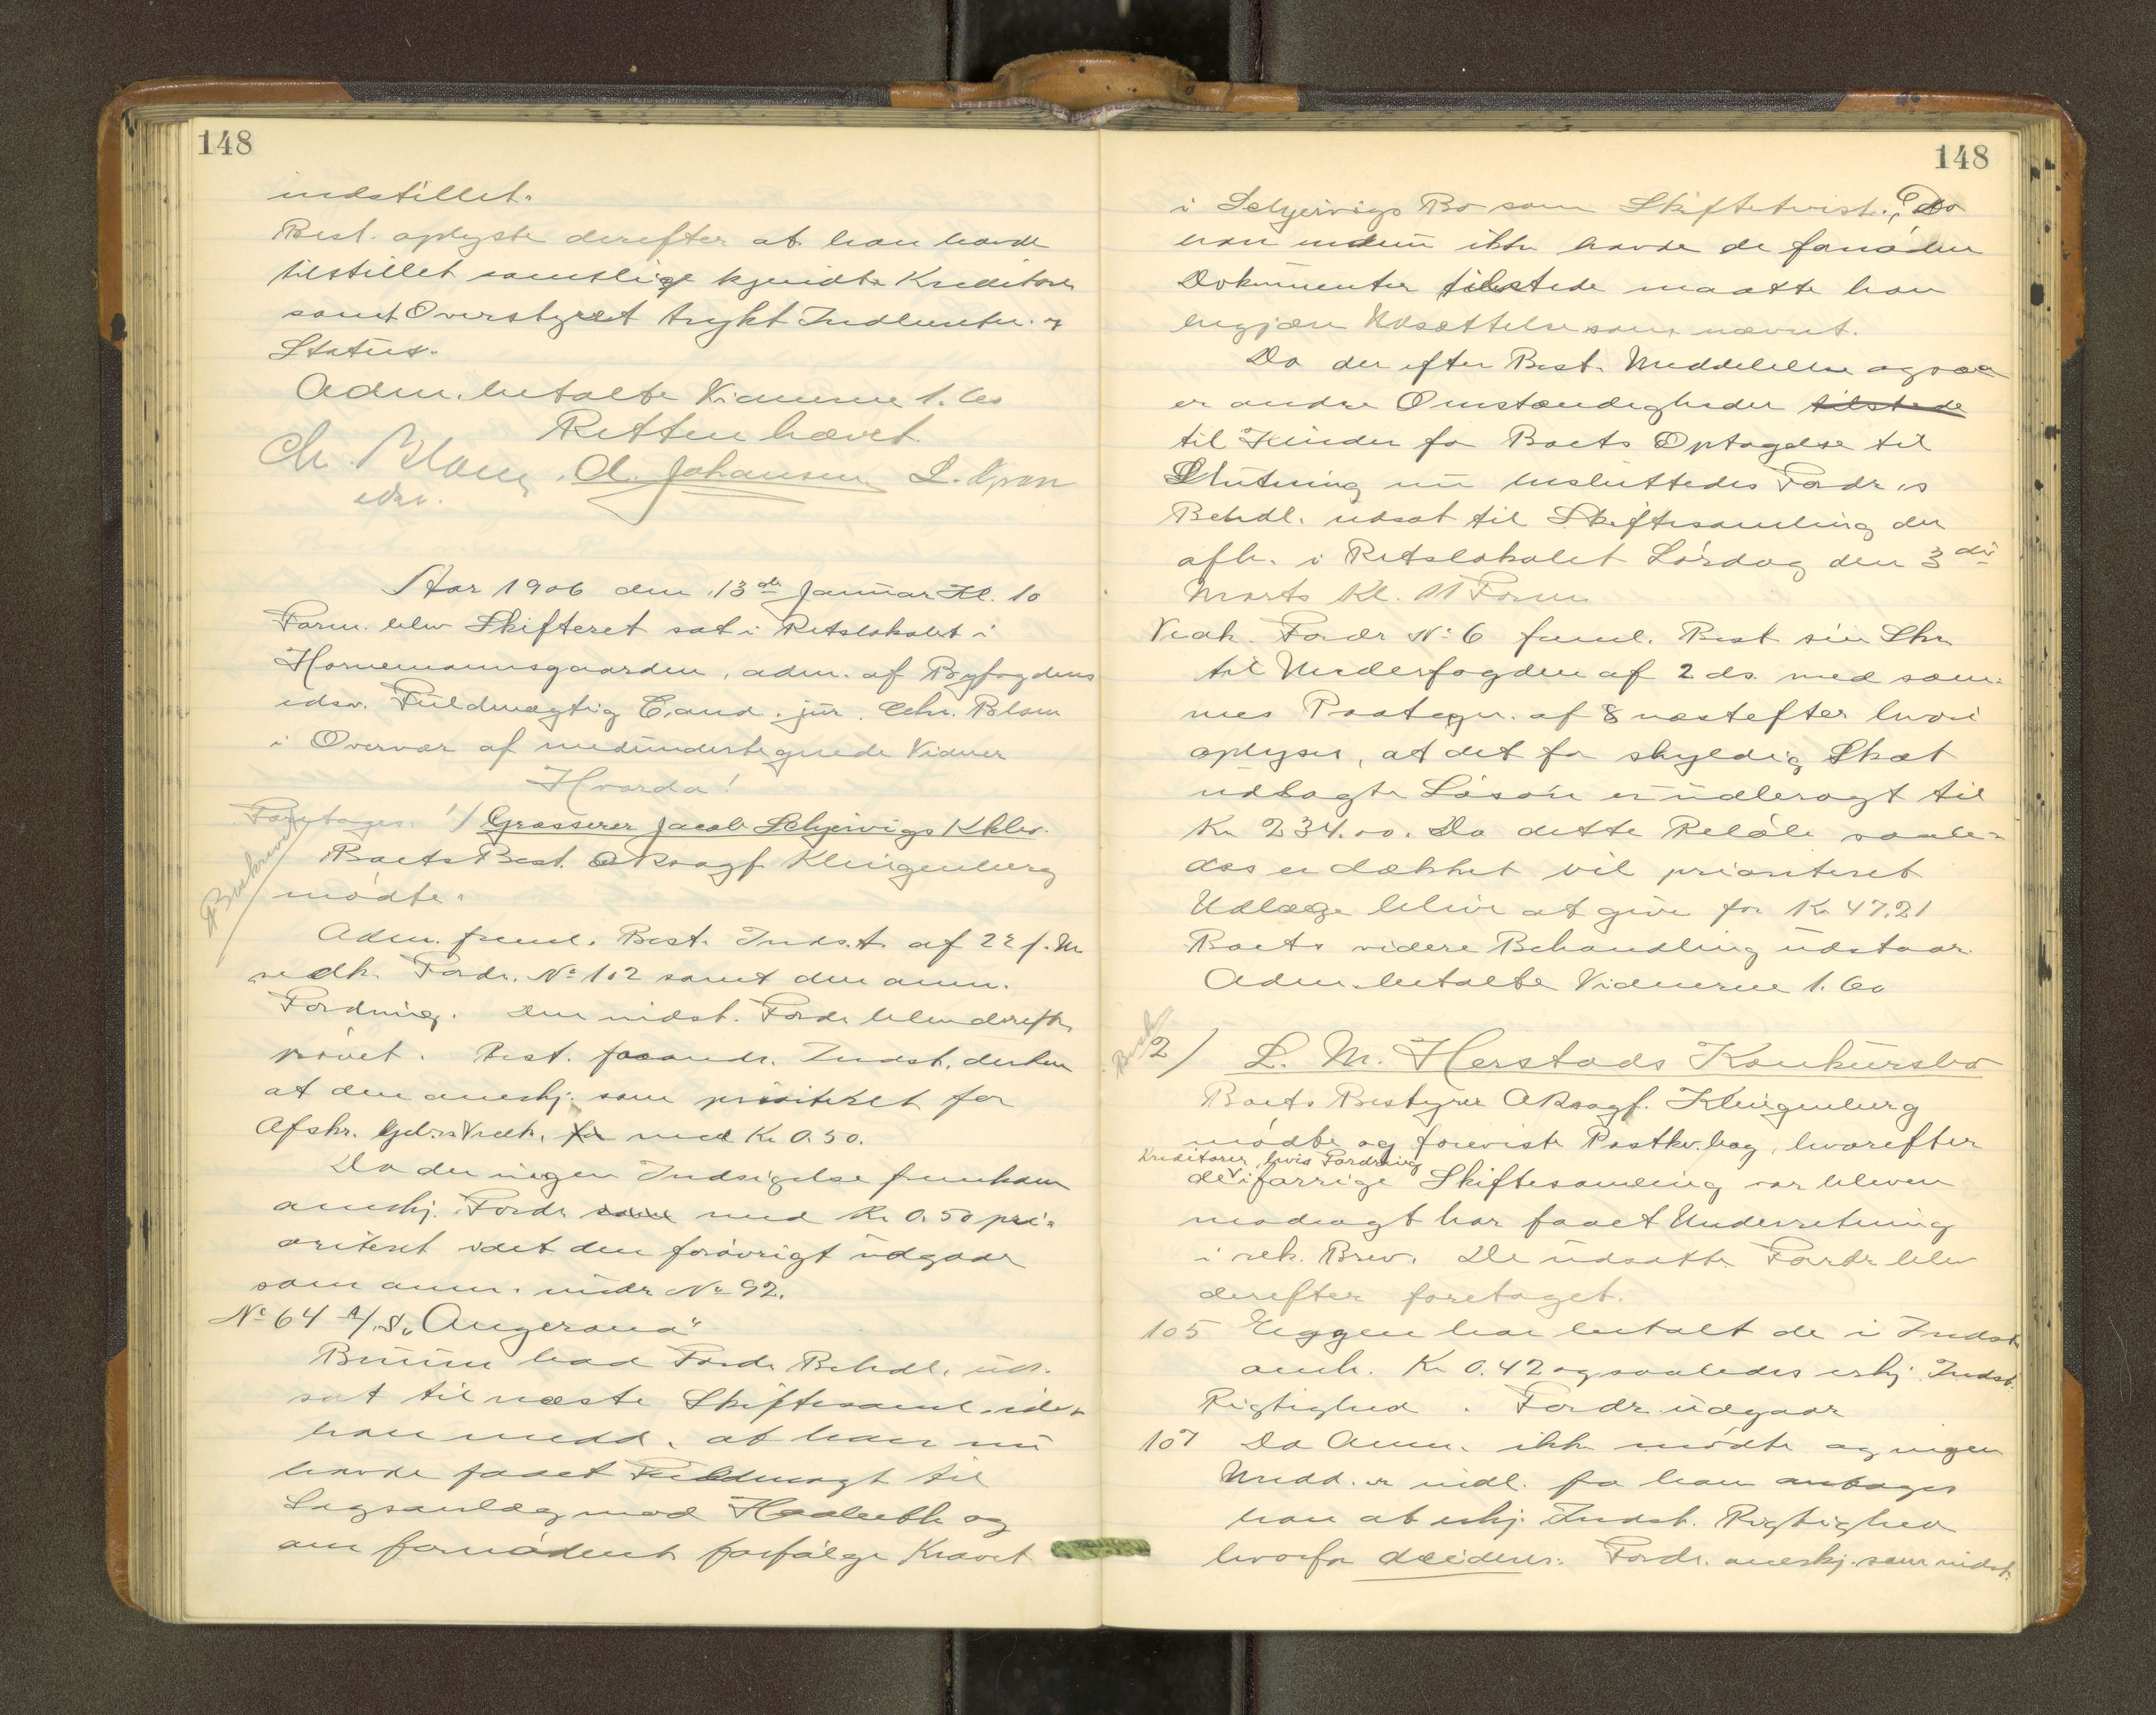 148
indstillet.
Best. oplyste derefter at han havde
tilstillet samtlige kjendte Kreditorer
samt Overstyret trykt Indberetn. og
Status.
Adm. betalte Vidnerne 1.60
Retten hævet
Chr. Blom, A. Johansen L. Gran
edsv.
Aar 1906 den 13de Januar Kl. 10
Form. blev Skifteret sat i Retslokalet i
Hornemannsgaarden, adm. af Byfogdens
edsv. Fuldmægtig Cand. jur. Chr. Blom
i Overvær af medundertegnede Vidner
Hvorda!
Foretages 1/ Grosserer Jacob Schjervigs Kkbo.
Beskrevet
Boets Best. ORsagf. Klingenberg
mødte.
Adm. freml. Best. Indst. af 22 f. M.
vedk. Fordr. No 102 samt den anm.
Fordring. Den indst. Fordr. blev derefter
prøvet. Best. forandr. Indst. derhen
at den anerkj. som prioritert for
Afskr. Gjeb. Vedk. med Kr 0.50.
Da der ingen Indsigelse fremkom
anerkj. Fordr. med Kr 0.50 pri-
oritert idet den forøvrigt udgaar
som anm. under No 92.
No 64 A/S "Angerona"
Bruun bad Fordr. Behdl. ud-
sat til næste Skiftesaml. idet
han medd. at han nu
havde faaet Fuldmagt til
Sagsanlæg mod og
om fornødent forfølge Kravet
148
i Schjervigs Bo som Skiftetvist. Da
han imidlertid ikke havde de fornødne
Dokumenter tilstede maatte han
begjære Udsættelse som nævnt.
Da der efter Best. Meddelelse ogsaa
er andre Omstændigheder tilstede
til Hinder for Boets Optagelse til
Slutning nu besluttedes Fordr.s
Behdl. udsat til Skiftesamling der
afh. i Retslokalet Lørdag den 3die
Marts Kl. 11 Form
Vedk. Fordr No 6 freml. Best sin Skr.
til Underfogden af 2 ds. med sam-
mes Paategn. af 8 næstefter hvori
oplyses, at det for skyldig Skat
udlagte Løsøre er udbragt til
Kr 234.00. Da dette Beløb saale-
des er dækket vil prioritert
Udlæg blive at give for Kr 47.21
Boets videre Behandling udstaar.
Adm. betalte Vidnerne 1.60
Besk
2/ L. M. Herstads Konkursbo
Boets Bestyrer ORsagf. Klingenberg
mødte og foreviste Postkv.bog, hvorefter
Kreditorer, hvis Fordring
de i forrige Skiftesamling var bleven
modsagt har faaet Underretning
i rek. Brev. De udsatte Fordr. blev
derefter foretaget.
105 Eggen har betalt de i Indst.
omh. Kr 0.42 og saaledes erkj. Indst.
Rigtighed. Fordr. udgaar
107 Da Anm. ikke mødte og ingen
Medd. er indl. fra ham antages
han at erkj. Indst. Rigtighed
hvorfor decideres: Fordr. anerkj. som indst.